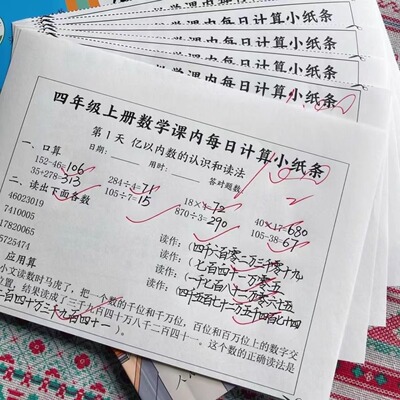 数学课内每日计算小纸条
数学课内每日计算小纸条
数学课内每日计算小纸条
四年级上册数学课内每日计算小纸条
第1天 亿以内数的认识和读法
日期：____ 用时：____ 答对题数
一、口算
152-46=106 284÷4=71 18×4=72 40×17=680
35+278=313 105÷7=15 870÷3=290 105-38=67
二、读出下面各数
46023019 读作：（四千六百零二万三千零一十九）
7410005 读作：（七百四十一万零五）
17820065 读作：（一千七百八十二万零六十五）
5725474 读作：（四千五百七十二万五千四百七十四）
应用
小文读数时马虎了，把一个数的千位和千万位，百位和百万位上的数字交
位置，结果读成了三千九百四十万八千二百四十一。这个数的正确读法是
百四十万三千九百四十一）。